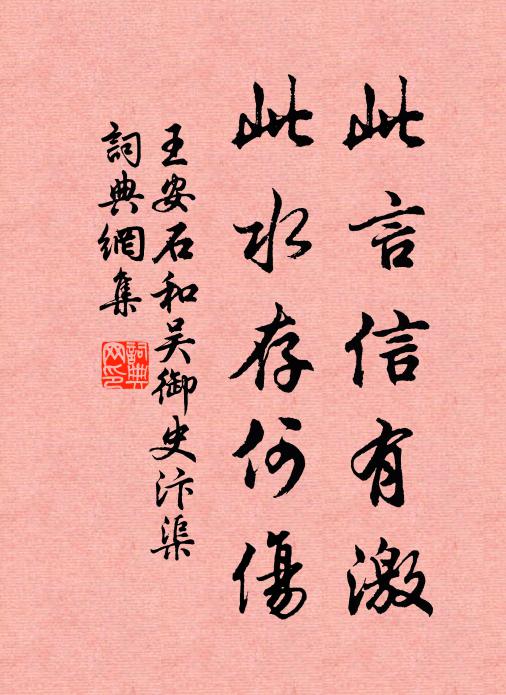 此言信有激
此水存何傷
王安石和吴御史汴渠
詞典網集
詞典
网印